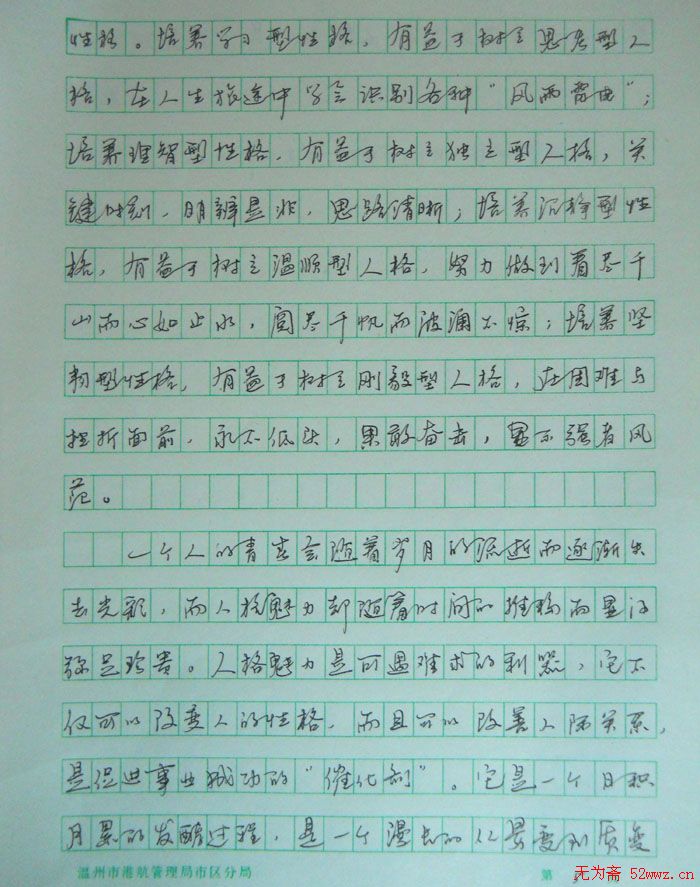 性格。培养学习型性格，有益于树立思考型人
格，在人生旅途中学会识别各种“风雨雷电”；
培养理智型性格，有益于树立独立型人格，关
键时刻，明辨是非，思路清晰；培养沉静型性
格，有益于树立温顺型人格，努力做到看尽千
山而心如止水，阅尽千帆而波澜不惊；培养坚
韧型性格，有益于树立刚毅型人格，在困难与
挫折面前，永不低头，果敢奋击，显示强者风
范。
一个人的青春会随着岁月的流逝而逐渐失
去光彩，而人格魅力却随着时间的推移而显得
弥足珍贵。人格魅力是可遇难求的利器，它不
仅可以改变人的性格，而且可以改善人际关系，
是促进事业成功的“催化剂”。它是一个日积
月累的发酵过程，是一个漫长的从量变到质变
温州市港航管理局市区分局 第
无为斋 52wwz.cn